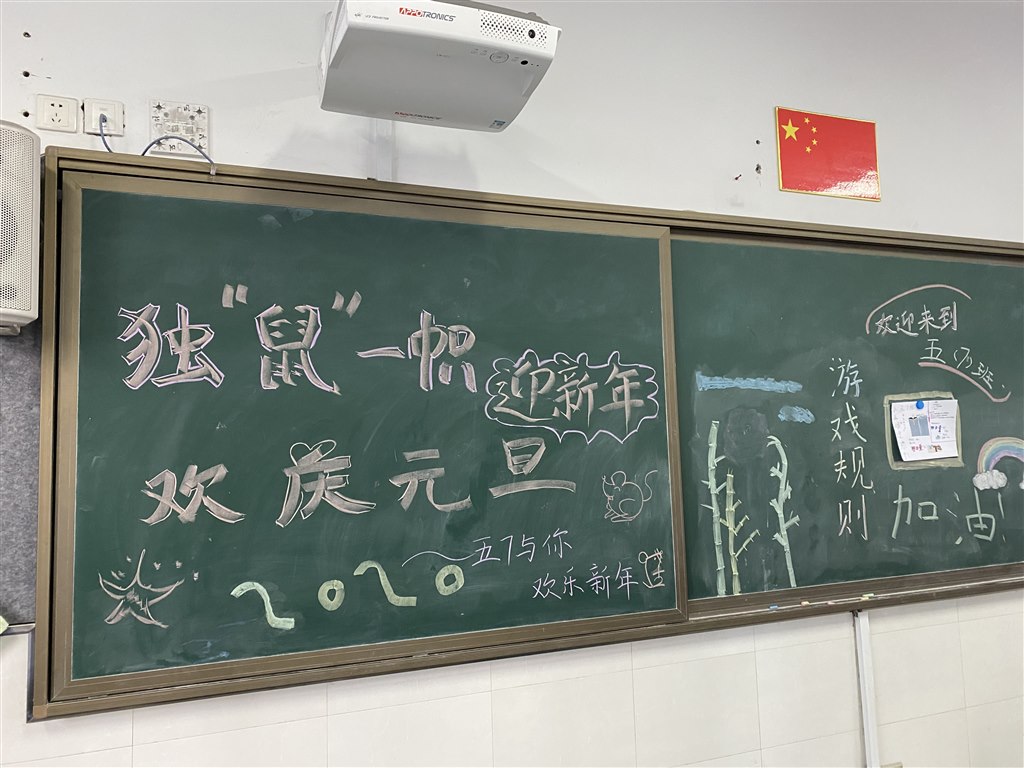 APPOTRONICS
APPOTRONICS
独"鼠"一帜
迎新年
欢庆元旦
2020
五7与你
欢乐新年
欢迎来到
五(7)班
游戏规则
加油